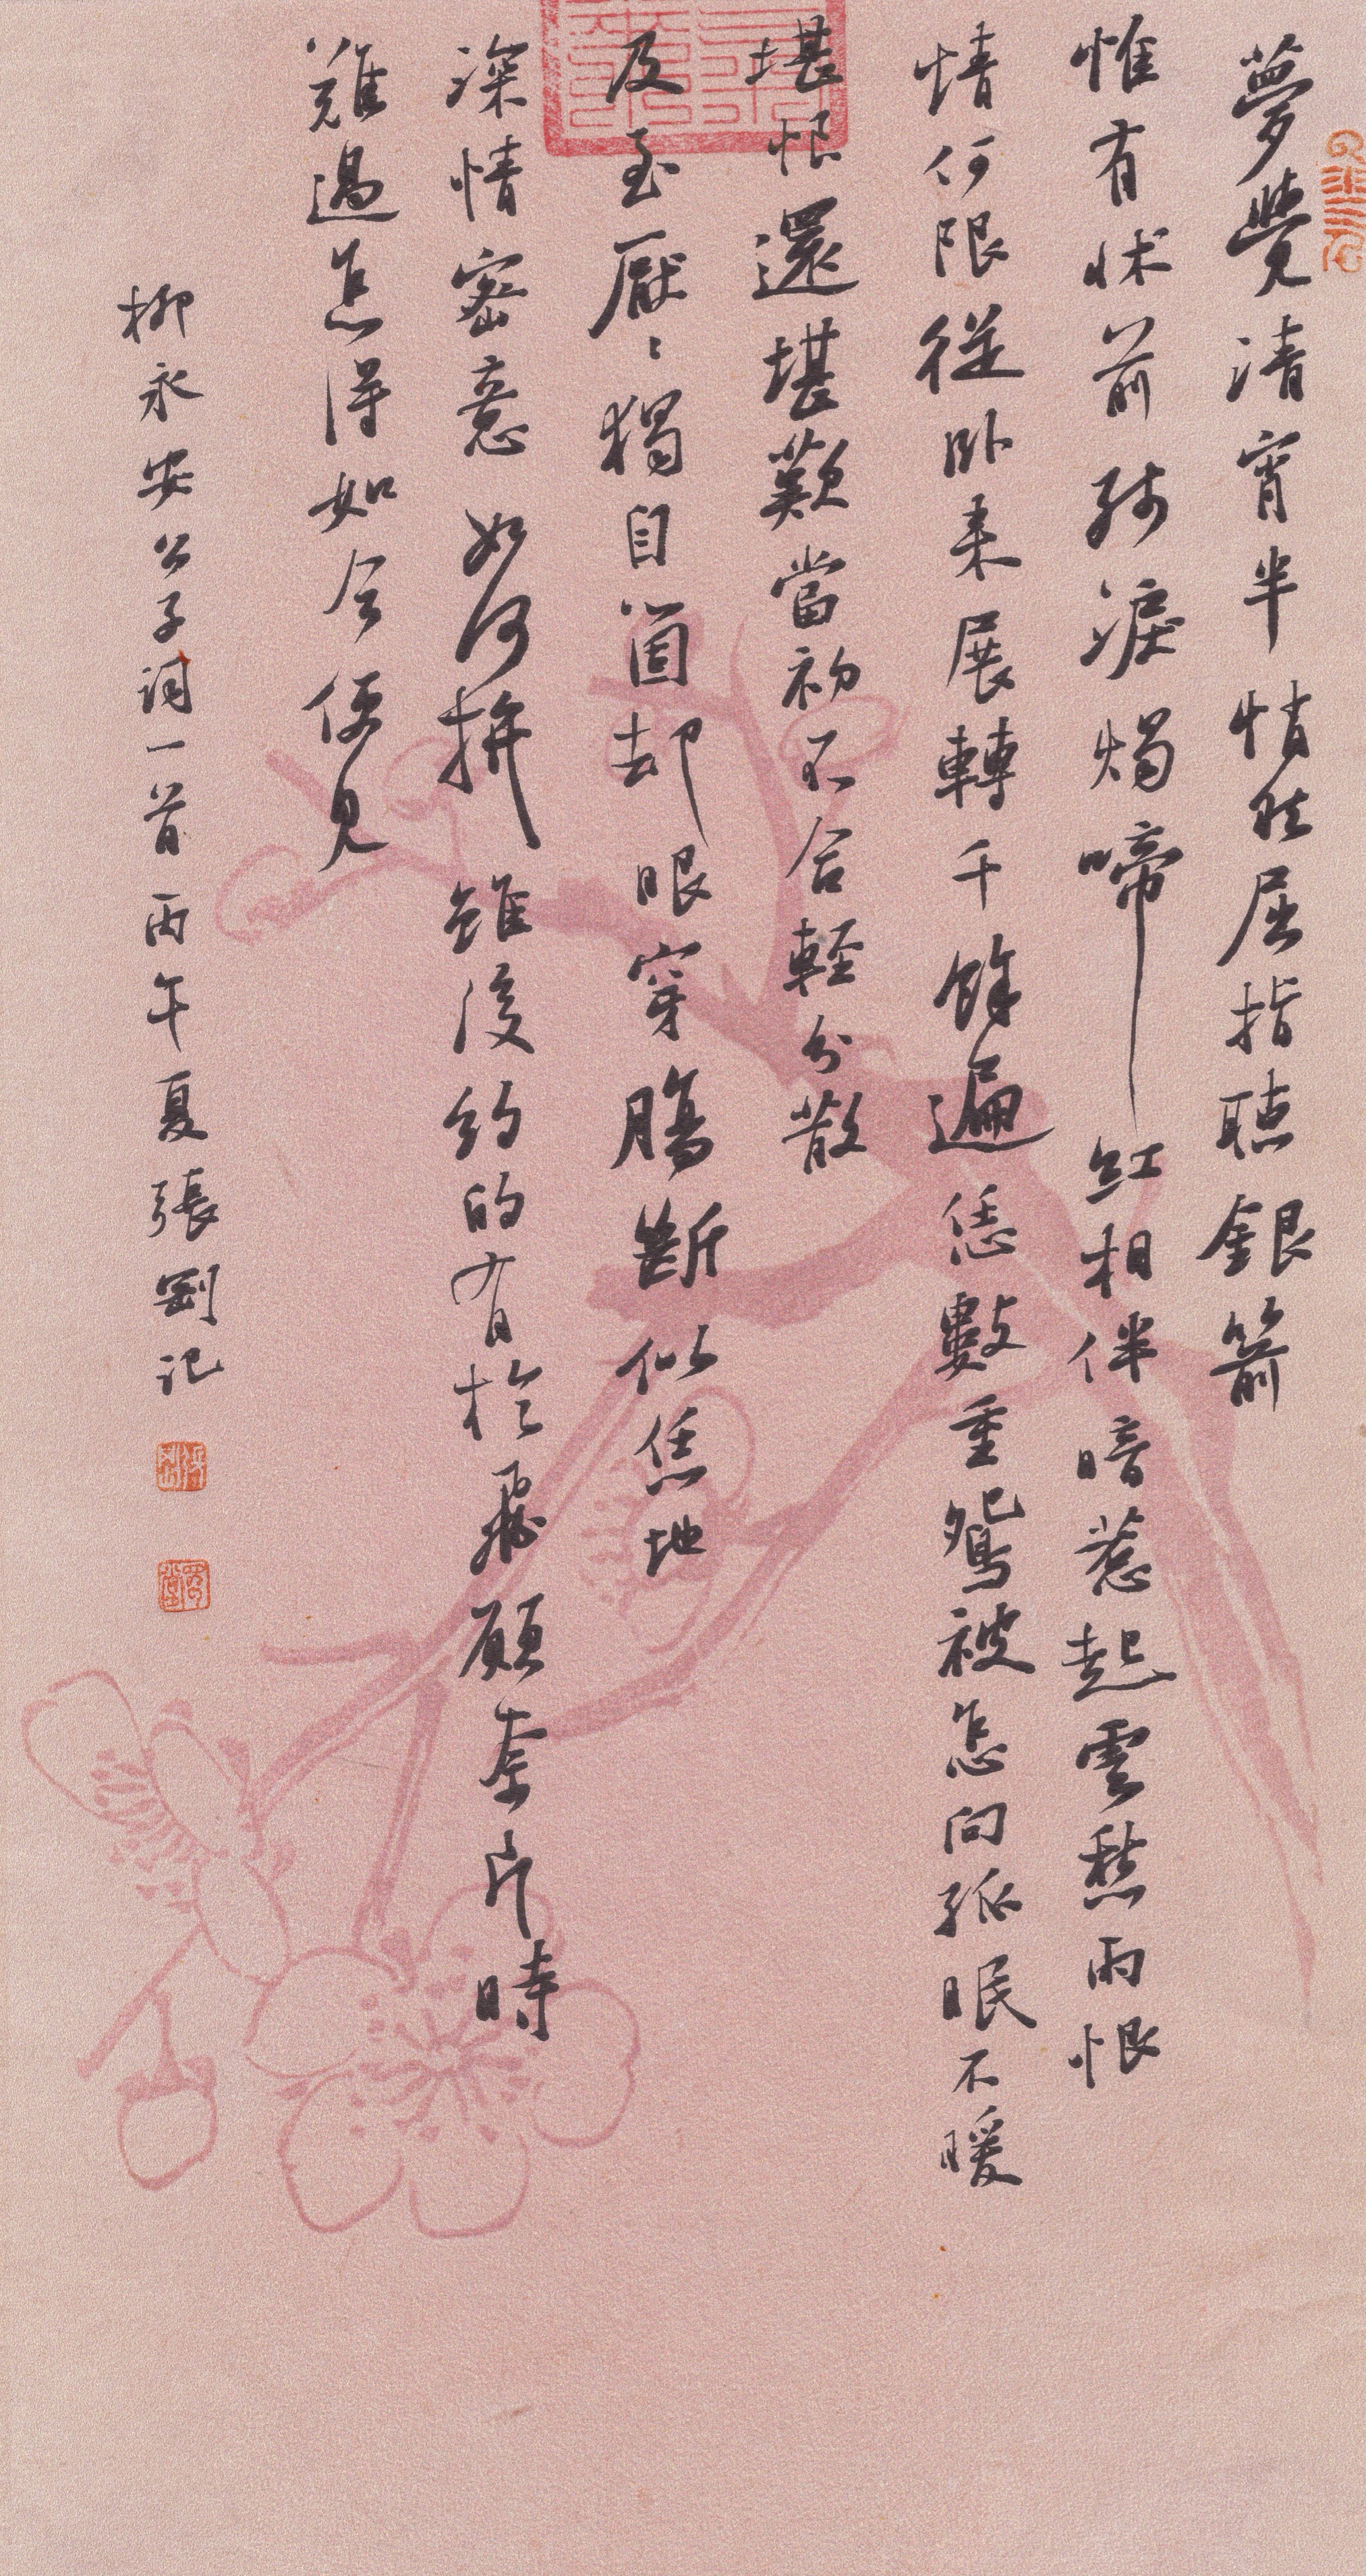 夢覺清宵半悄然屈指聽銀箭
惟有牀前殘淚燭啼紅相伴暗惹起雲愁雨恨
情何限從臥來展轉千餘遍恁數重鴛被怎向孤眠不暖
堪恨還堪歎當初不合輕分散
及至厭〻獨自箇却眼穿腸斷似恁地
深情密意如何拚雖後約的有於飛願奈片時
難過怎得如今便見
柳永安公子詞一首丙午夏張剛記